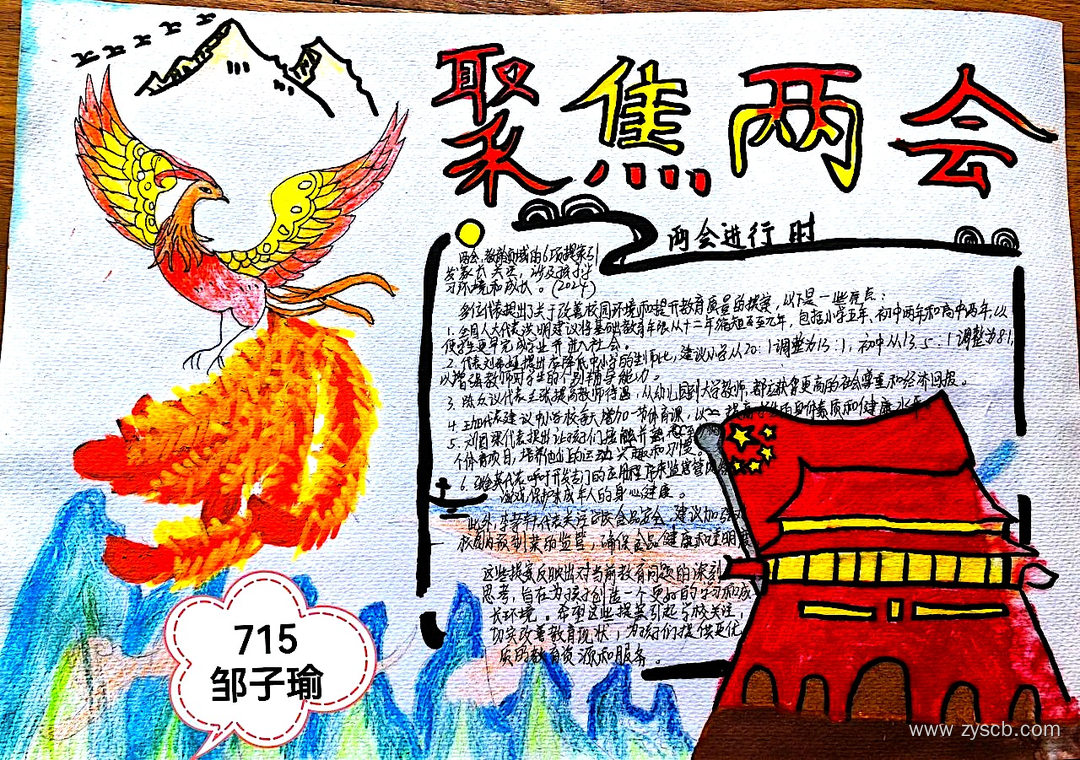 聚焦两会
两会进行时
两会,教育领域的6项提案引
发家长关注,涉及孩子学
习环境和成长。(2024)
多位代表提出了关于改善校园环境和提升教育质量的提案,以下是一些亮点:
1.全国人大代表 建议将基础教育年限从十二年缩短至九年,包括小学五年、初中两年和高中两年,以
便学生更早完成学业并进入社会。
2.代表 提出应降低中小学的生师比,建议小学从20:1调整为15:1,初中从13.5:1调整为8:1,
以增强教师对学生的个别辅导能力。
3. 代表主张提高教师待遇,从幼儿园到大学教师,都应获得更高的社会尊重和经济回报。
4. 代表建议中小学校每天增加一节体育课,以 提高学生的身体素质和健康水平
5.刘国梁代表提出让孩子们接触并
个体育项目,培养他们的运动兴趣和习惯。
6. 代表呼吁开发专门的应用程序来监管
游戏,保护未成年人的身心健康。
此外,李 代表关注 食品安全,建议加强对
校园内预制菜的监管,确保食品健康和透明度
这些提案反映出对当前教育问题的深刻
思考,旨在为孩子创造一个更好的学习和成
长环境。希望这些提案引起学校关注,
切实改善教育现状,为孩子们提供更优
质的教育资源和服务。
715
邹子瑜
www.zyscb.com